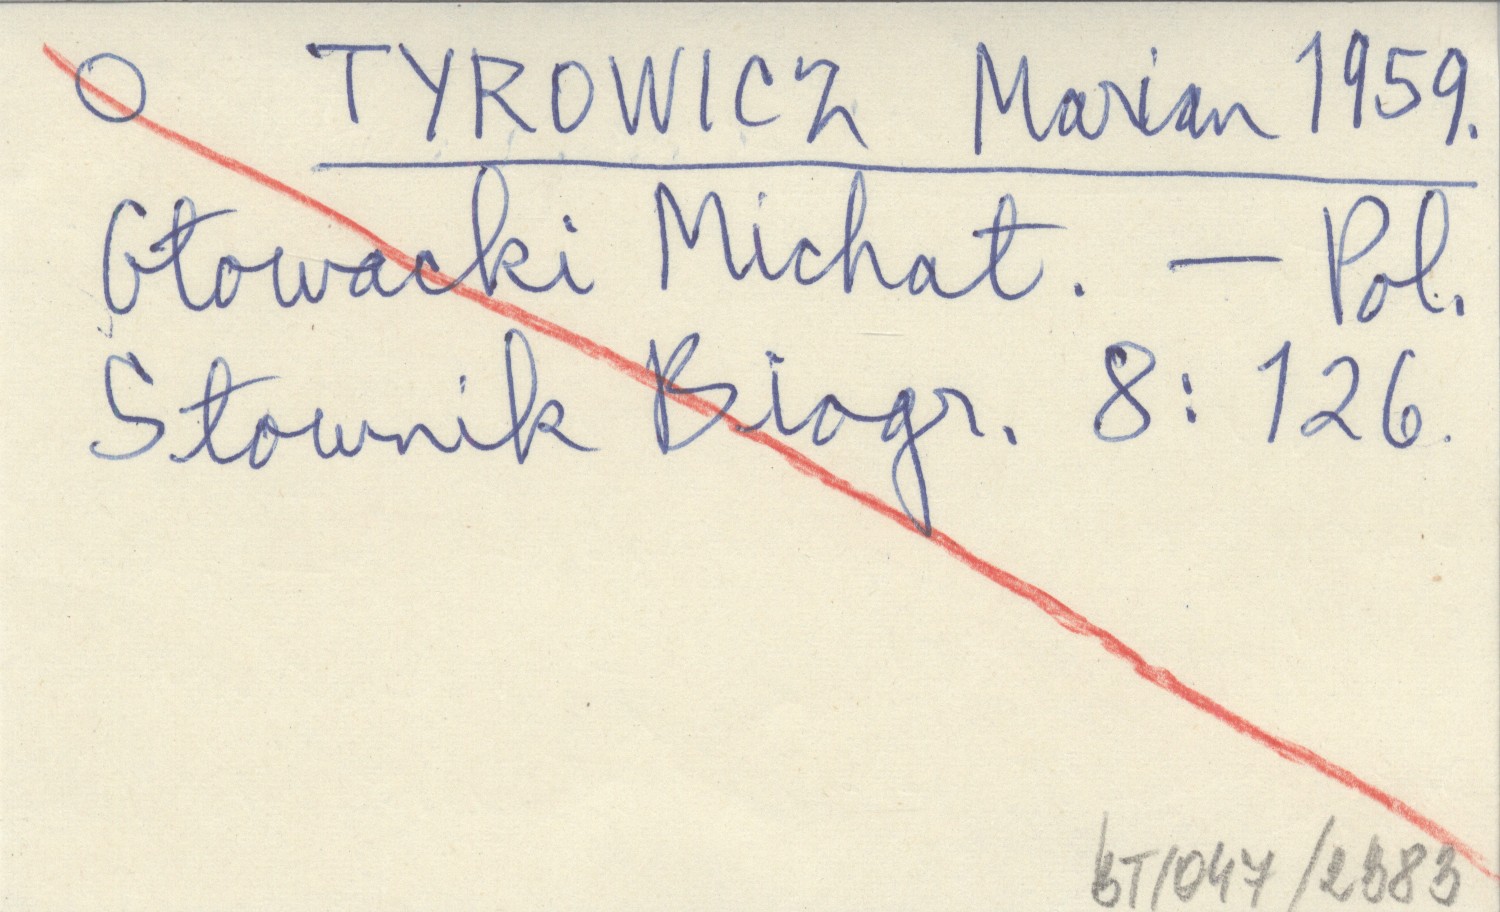 TYROWICZ Marian 1959.
Głowacki Michał. — Pol.
Słownik Biogr. 8: 126.
BT/047/2383